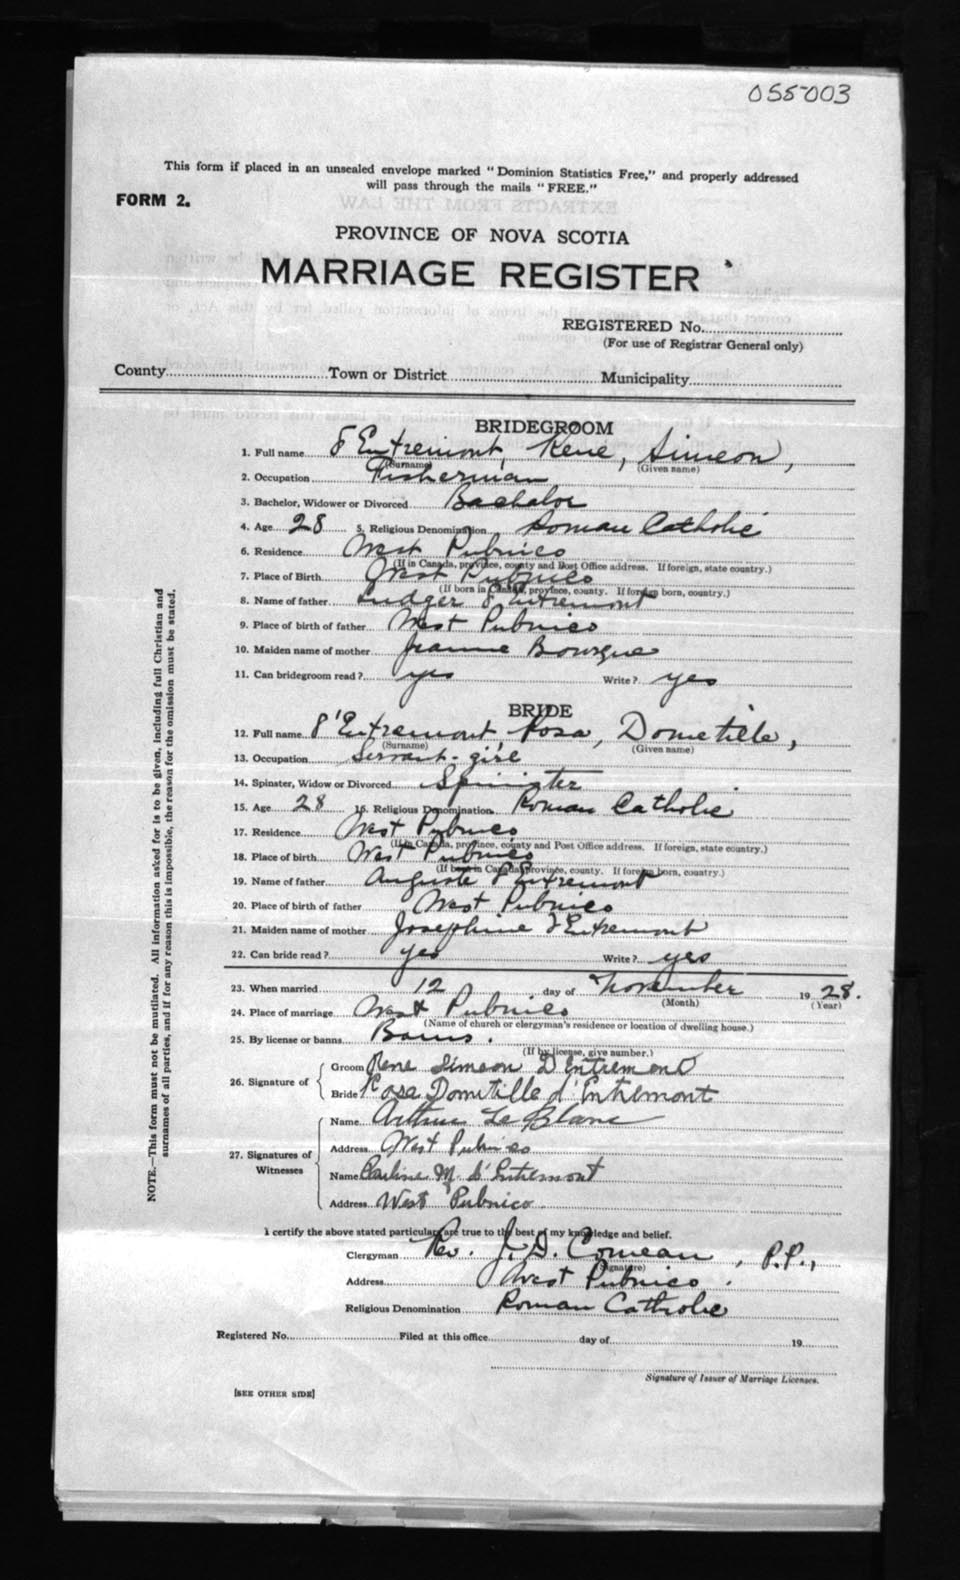 055003
This form if placed in an unsealed envelope marked "Dominion Statistics Free," and properly addressed
will pass through the mails "FREE."
FORM 2.
PROVINCE OF NOVA SCOTIA
MARRIAGE REGISTER
REGISTERED No.
(For use of Registrar General only)
County Town or District Municipality
BRIDEGROOM
1. Full name d'Entremont, Rene, Simeon,
(Surname) (Given name)
2. Occupation Fisherman
3. Bachelor, Widower or Divorced Bachelor
4. Age 28 5. Religious Denomination Roman Catholic
6. Residence West Pubnico
(If in Canada, province, county and Post Office address. If foreign, state country.)
7. Place of Birth West Pubnico
(If born in Canada, province, county. If foreign born, country.)
8. Name of father Ludger d'Entremont
9. Place of birth of father West Pubnico
10. Maiden name of mother Jeanne Bourque
11. Can bridegroom read? yes Write? yes
BRIDE
12. Full name d'Entremont Rosa, Dometille,
(Surname) (Given name)
13. Occupation Servant-girl
14. Spinster, Widow or Divorced Spinister
15. Age 28 16. Religious Denomination Roman Catholic
17. Residence West Pubnico
(If in Canada, province, county and Post Office address. If foreign, state country.)
18. Place of birth West Pubnico
(If born in Canada, province, county. If foreign born, country.)
19. Name of father Auguste d'Entremont
20. Place of birth of father West Pubnico
21. Maiden name of mother Josephine d'Entremont
22. Can bride read? yes Write? yes
23. When married 12 day of November 1928.
(Month) (Year)
24. Place of marriage West Pubnico
(Name of church or clergyman's residence or location of dwelling house.)
25. By license or banns Banns.
(If by license, give number.)
26. Signature of
Groom Rene Simeon D'Entremont
Bride Rosa Dometille d'Entremont
27. Signatures of Witnesses
Name Arthur Le Blanc
Address West Pubnico
Name M. d'Entremont
Address West Pubnico
I certify the above stated particulars are true to the best of my knowledge and belief.
Clergyman Rev. J. D. Comeau, P.P.,
(Signature)
Address West Pubnico.
Religious Denomination Roman Catholic
Registered No. Filed at this office day of 19
Signature of Issuer of Marriage Licenses.
[SEE OTHER SIDE]
NOTE.—This form must not be mutilated. All information asked for is to be given, including full Christian and
surnames of all parties, and if for any reason this is impossible, the reason for the omission must be stated.